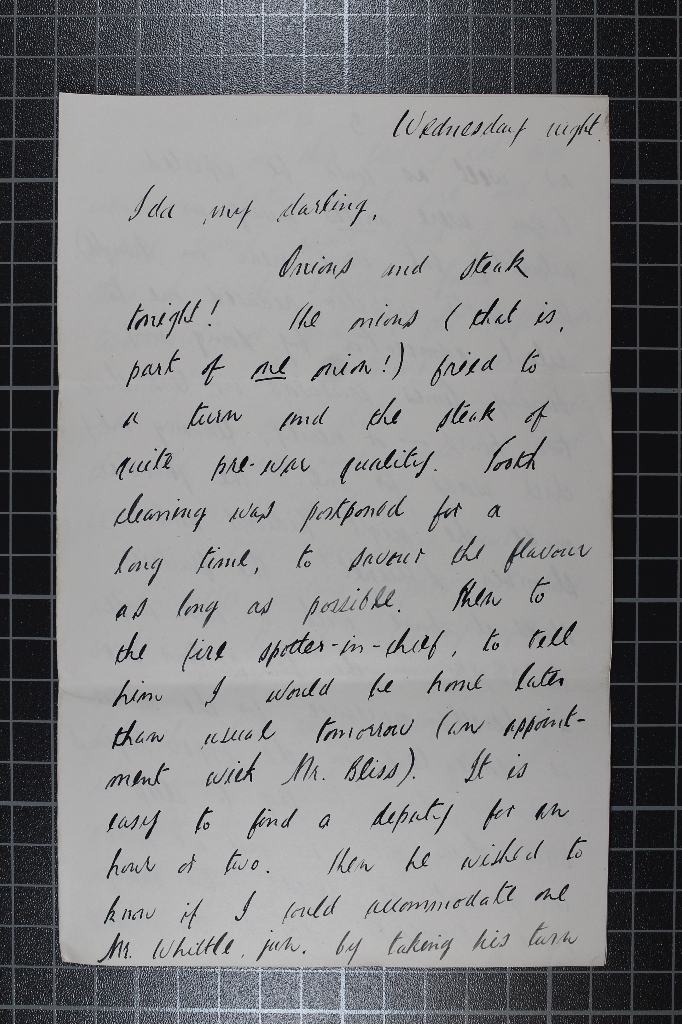 Wednesday night.
Ida my darling,
Onions and steak
tonight! The onions (that is,
part of one onion!) fried to
a turn and the steak of
quite pre-war quality. Tooth
cleaning was postponed for a
long time, to savour the flavour
as long as possible. Then to
the fire spotter-in-chief, to tell
him I would be home later
than usual tomorrow (an appoint-
ment with Mr. Bliss). It is
easy to find a deputy for an
hour or two. Then he wished to
know if I could accommodate one
Mr. Whittle, jun. by taking his turn